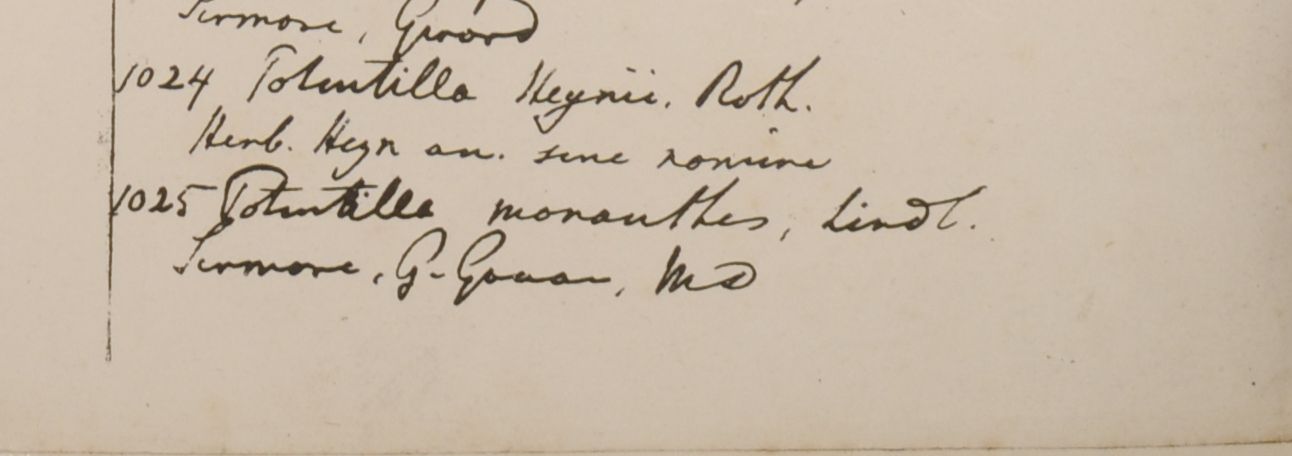 Sirmore, Gerard
1024 Potentilla Heynii. Roth.
Herb. Heyn an. sine nomine
1025 Potentilla monanthes, Lindl.
Sirmore, G. Govan, MD